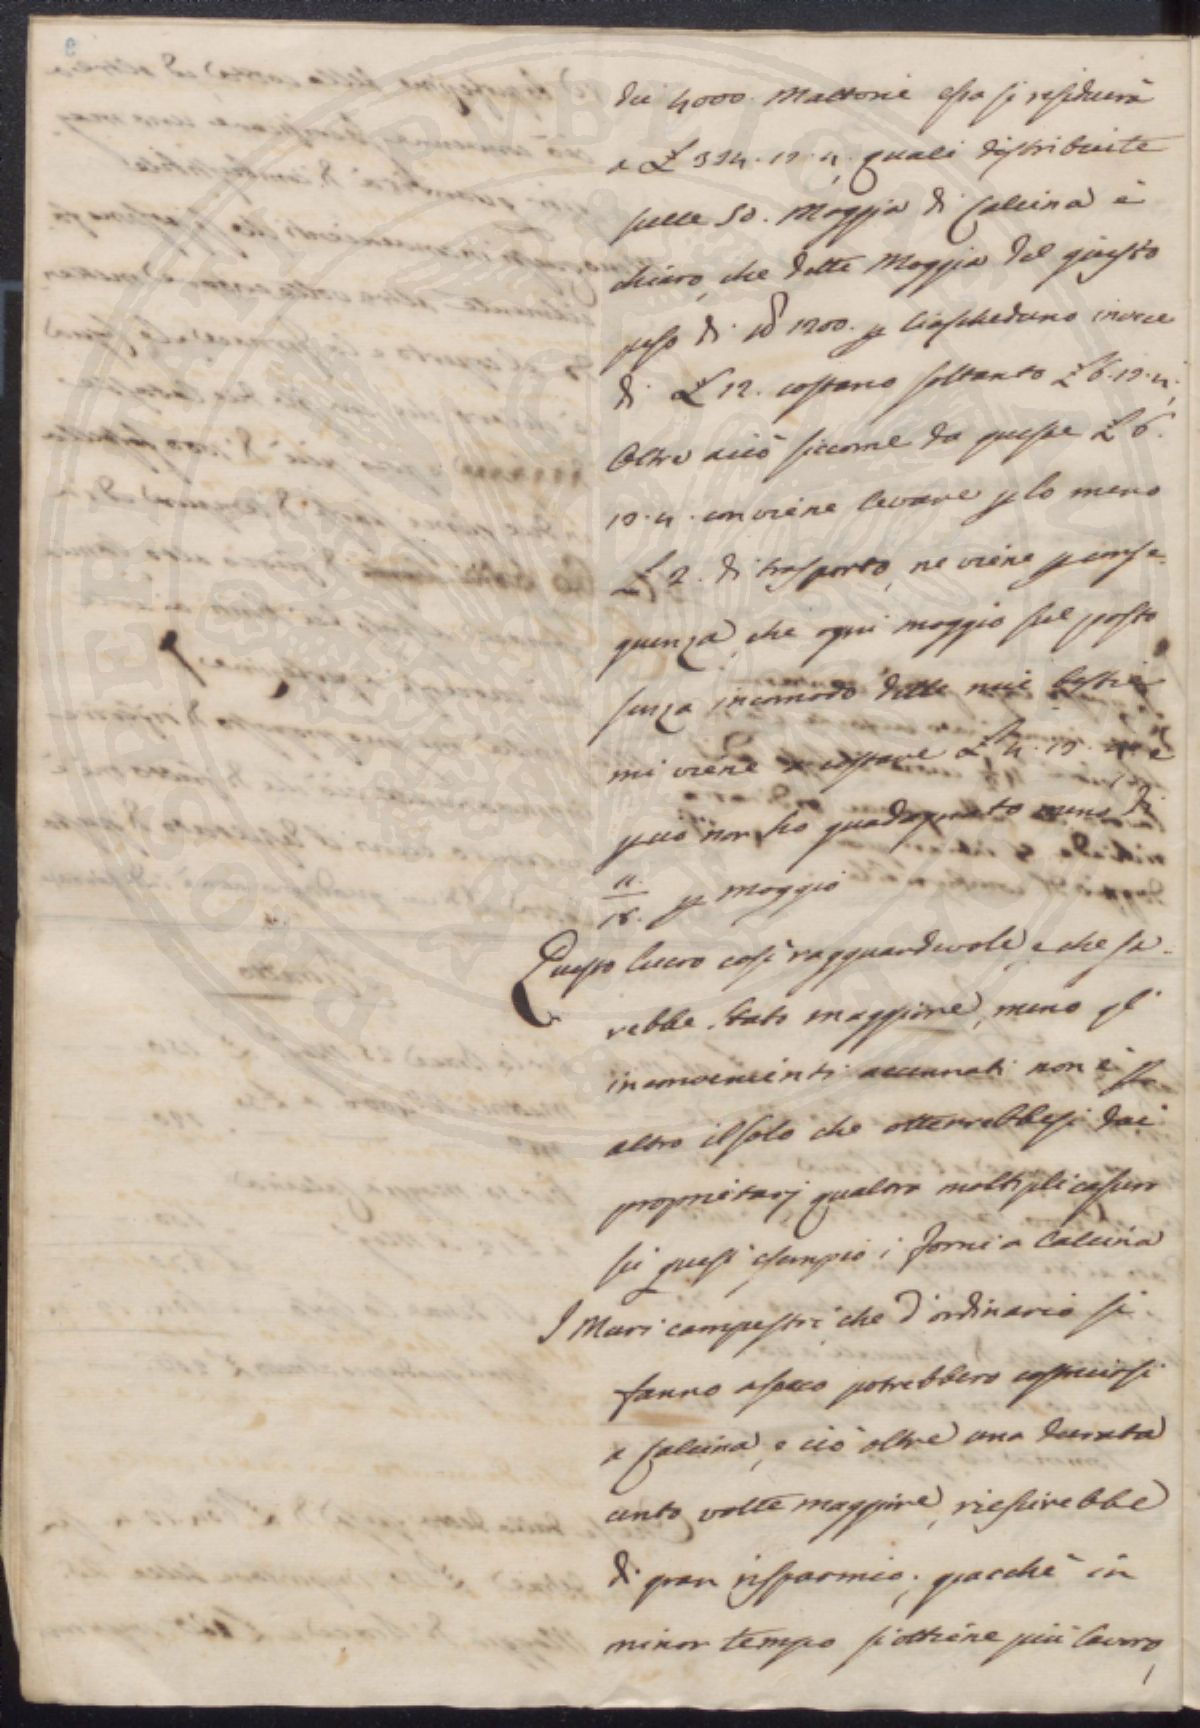 dei 4000. Mattoni essa si residuerà
a £ 334. 13. 4. quali distribuite
sulle 50. Moggia di Calcina è
chiaro, che dette Moggia del giusto
peso di lb 1200. p ciascheduno invece
di £ 12. costano soltanto £ 6. 13. 4.
Oltre acciò siccome da queste £ 6.
13. 4. conviene levare p lo meno
£ 2. di trasporto, ne viene p conse-
guenza, che ogni moggio sul posto
senza incomodo delle mie bestie
mi viene a costare £ 4. 13. 4. e
però non ho guadagnato meno di
p moggio
Questo lucro così ragguardevole, e che sa-
rebbe stato maggiore, meno gl'
inconvenienti accennati non è p
altro il solo che otterrebbesi dai
proprietarj qualora moltiplicassero
su quest'esempio i forni a Calcina
I Muri campestri, che d'ordinario si
fanno a secco potrebbero costruirsi
a Calcina, e ciò oltre una durata
cento volte maggiore, riescirebbe
di gran risparmio, giacchè in
minor tempo si ottiene più lavoro,